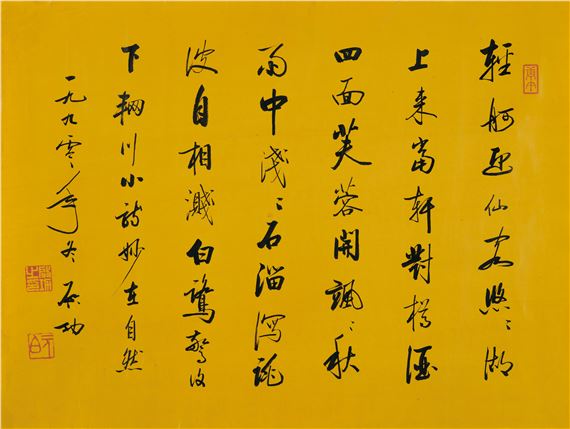 輕舸迎仙客悠〻湖
上来當軒對樽酒
四面芙蓉開颯〻秋
雨中淺〻石溜瀉跳
波自相濺白鷺驚復
下輞川小詩妙在自然
一九九零年冬 啟功
啟功之印
元白